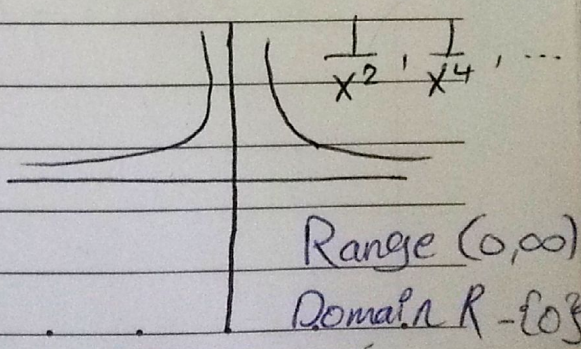 1/x², 1/x⁴, ...
Range (0,∞)
Domain R-{0}